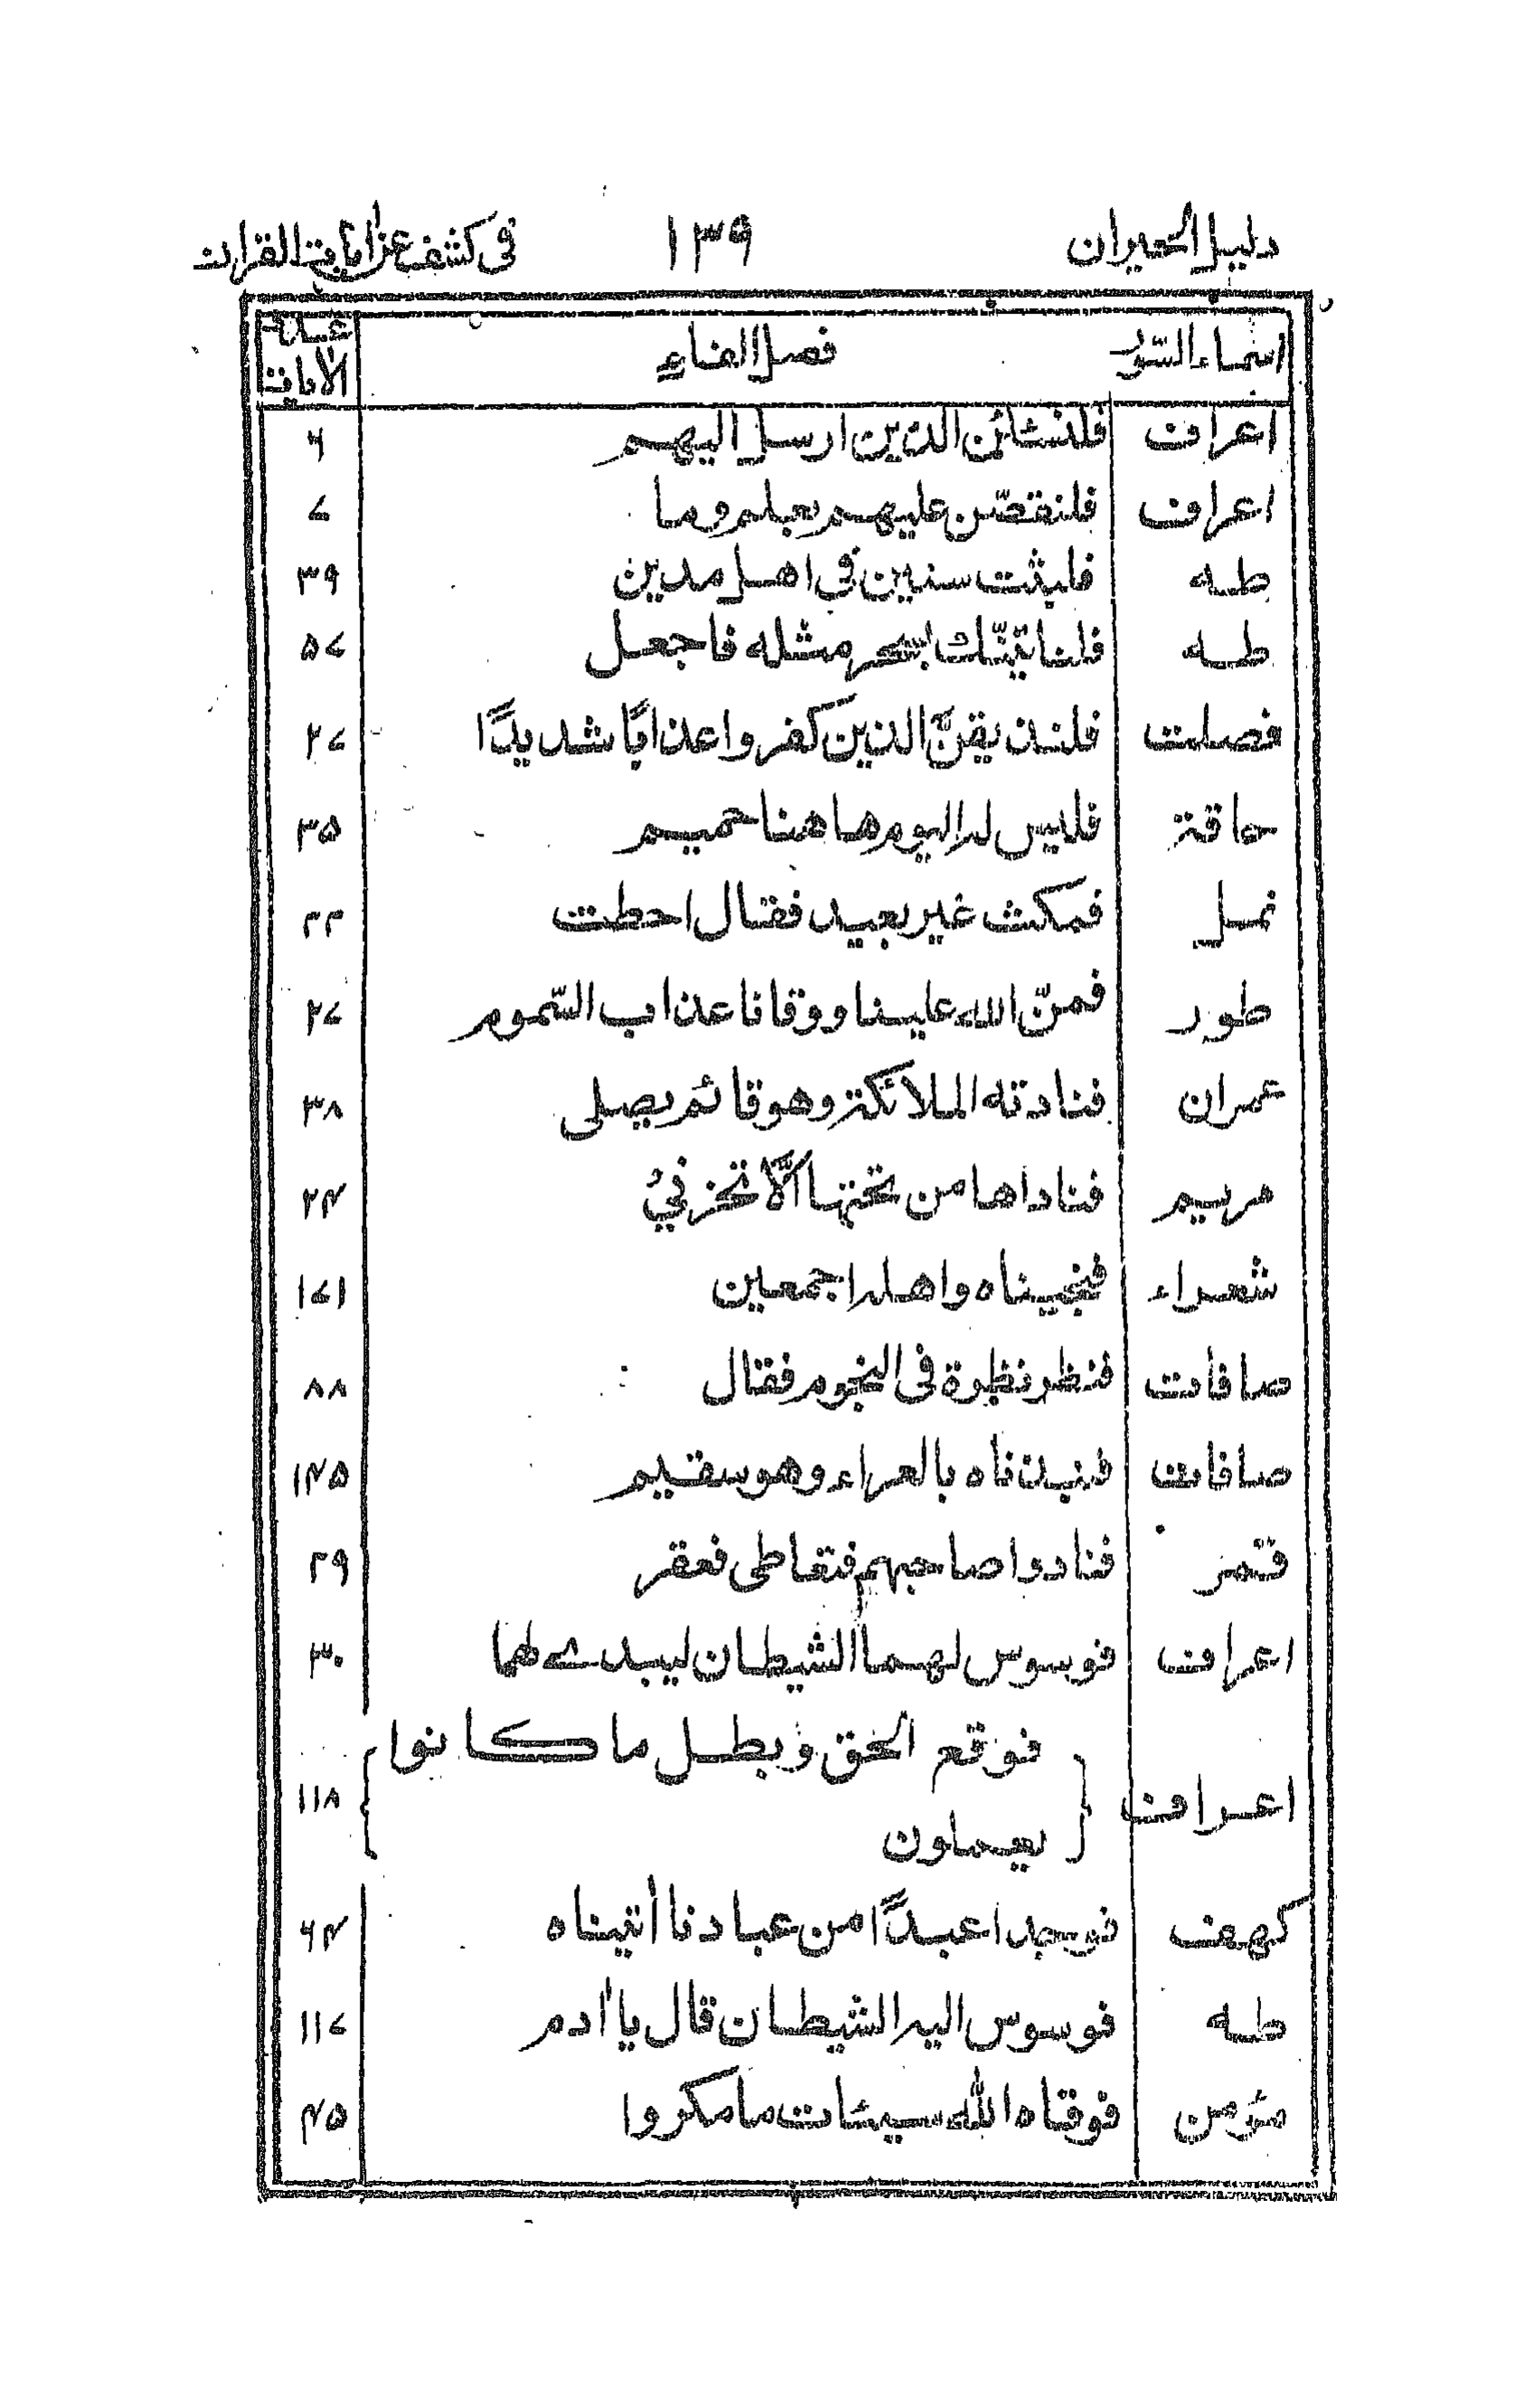 دليل الحيران ١٣٩ فى كشف عن ايات القران
اسماء السور فصل الفاء عدد الايات
اعراف فلنسئلن الذين ارسل اليهم ٦
اعراف فلنقصّن عليهم بعلم وما ٧
طه فلبثت سنين فى اهل مدين ٣٩
طه فلناتينّك بسحر مثله فاجعل ٥٧
فصلت فلنذيقنّ الذين كفروا عذابًا شديدًا ٢٧
حاقة فليس له اليوم هاهنا حميم ٣٥
نمل فمكث غير بعيد فقال احطت ٢٢
طور فمنّ الله علينا ووقانا عذاب السّموم ٢٧
عمران فنادته الملائكة وهو قائم يصلى ٣٨
مريم فناداها من تحتها الّا تحزنى ٢٤
شعراء فنجيناه واهله اجمعين ١٧١
صافات فنظر نظرة فى النجوم فقال ٨٨
صافات فنبذناه بالعراء وهو سقيم ١٤٥
قمر فنادوا صاحبهم فتعاطى فعقر ٢٩
اعراف فوسوس لهما الشيطان ليبدے لهما ٣٠
اعراف فوقع الحق وبطل ما كانوا ١١٨
يعملون
كهف فوجدا عبدًا من عبادنا اٰتيناه ٦٤
طه فوسوس اليه الشيطان قال يا اٰدم ١١٧
مؤمن فوقاه الله سيئات ما مكروا ٤٥